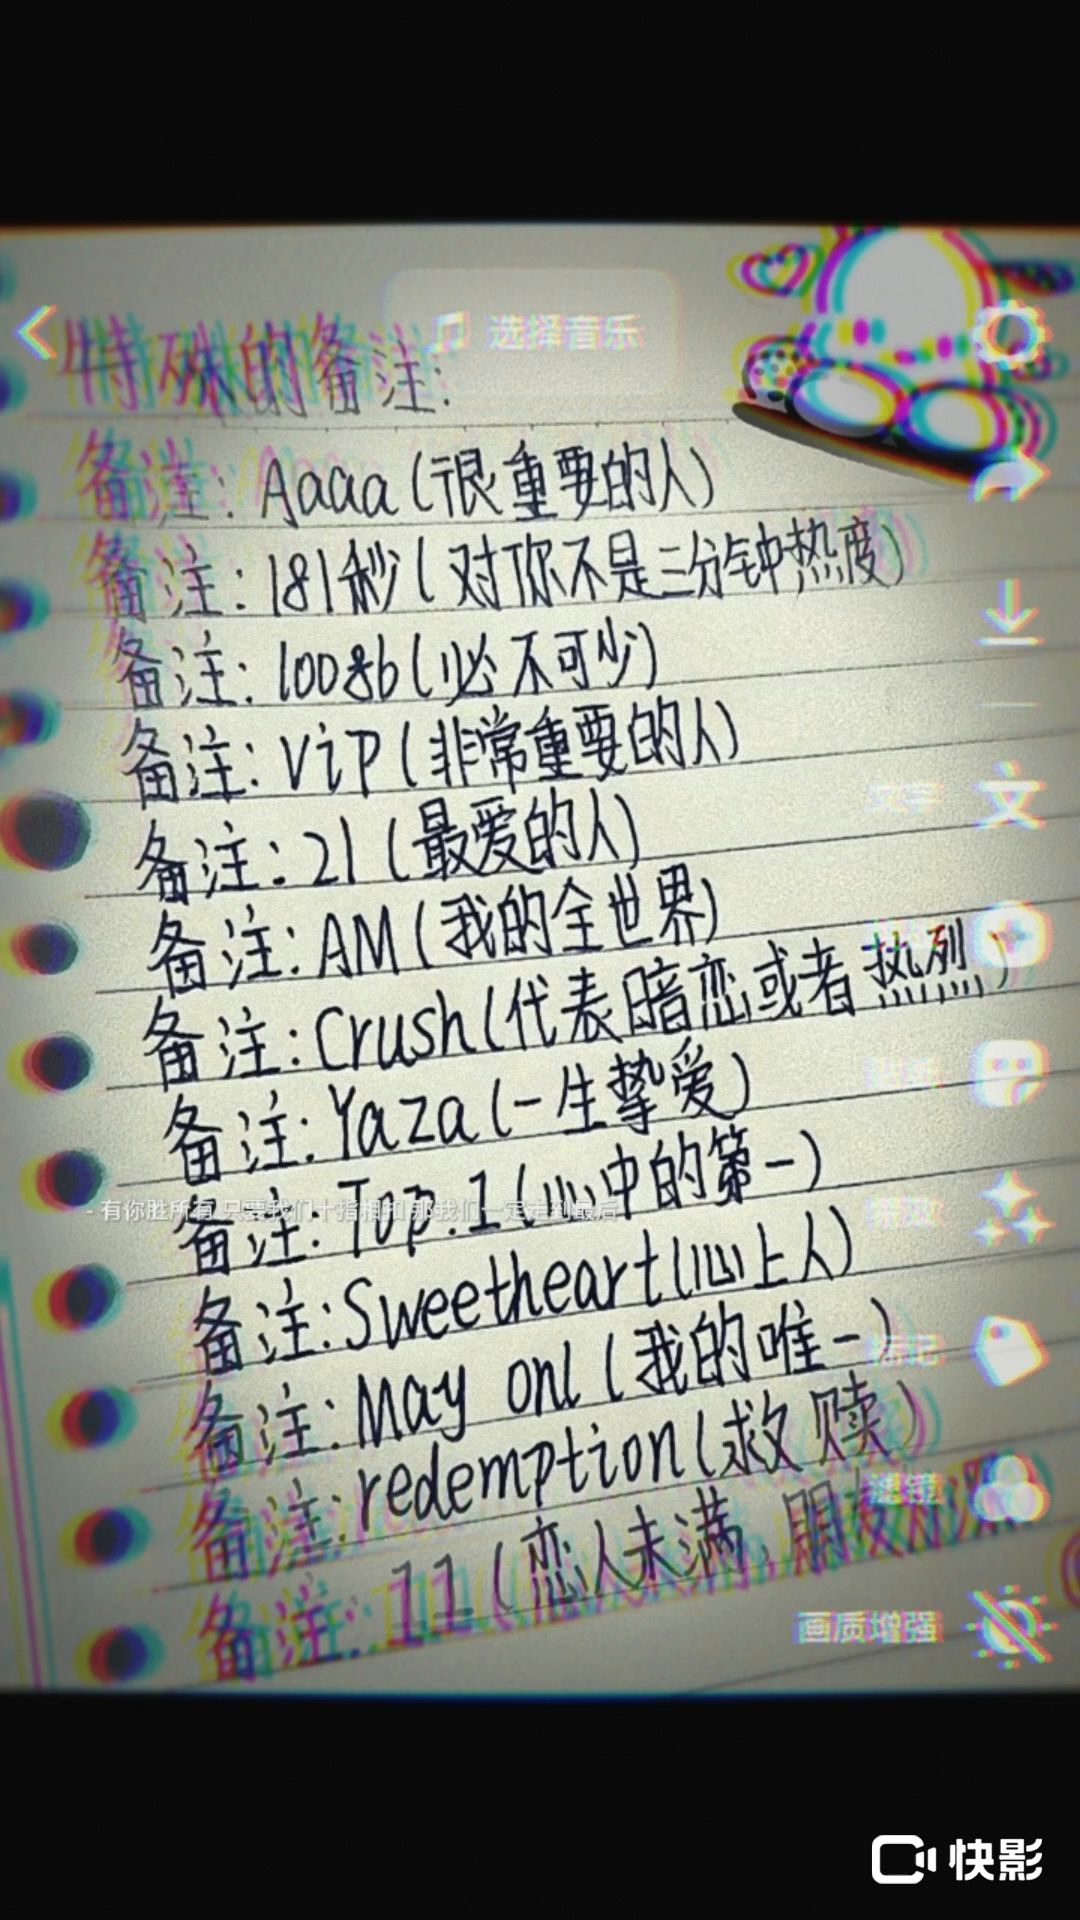 选择音乐
特殊的备注:
备注: Aaaa(很重要的人)
备注:181秒(对你不是三分钟热度)
备注:10086(必不可少)
备注:ViP(非常重要的人)
备注:21(最爱的人)
备注:AM(我的全世界)
备注:Crush(代表暗恋或者热烈)
备注:Yaza(一生挚爱)
- 有你胜所有 只要我们十指相扣 那我们一定走到最后
备注:Top.1(心中的第一)
备注:Sweetheart(心上人)
备注:May onl(我的唯一)
备注:redemption(救赎)
滤镜
备注:11(恋人未满,朋友
画质增强
快影